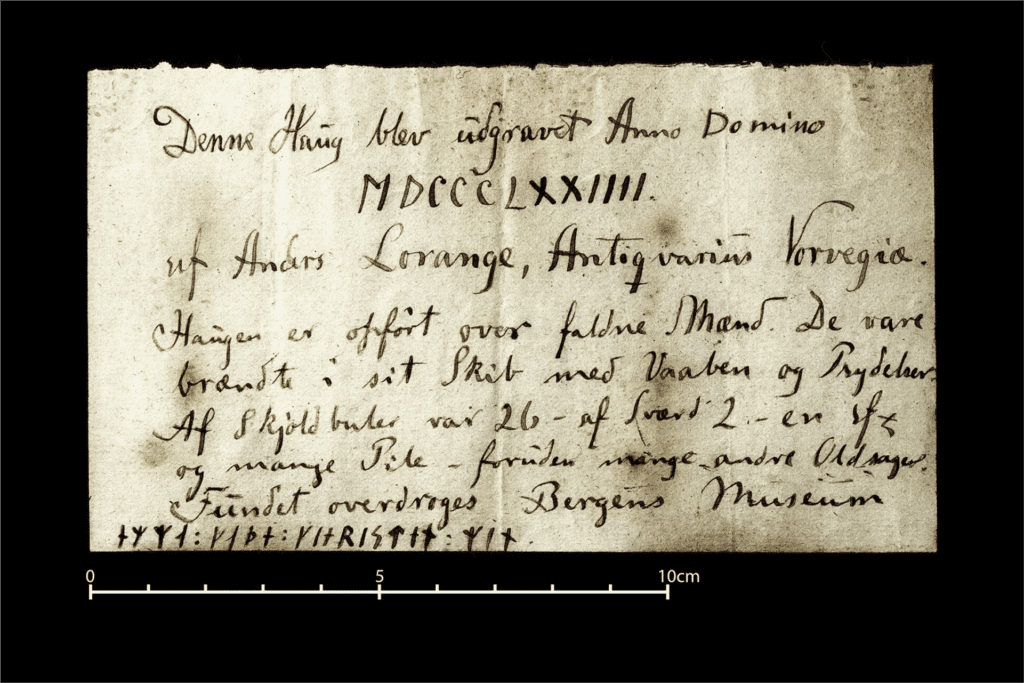 Denne Haug blev udgravet Anno Domino
MDCCCLXXIIII.
af Anders Lorange, Antiqvarius Norvegiæ.
Haugen er opført over faldne Mænd. De vare
brændte i sit Skib med Vaaben og Prydelser.
Af Skjoldbuler var 26 – af Sværd 2 – en
og mange Pile – foruden mange andre Oldsager.
Fundet overdroges Bergens Museum
ᛘᛁᚾ
0 5 10cm